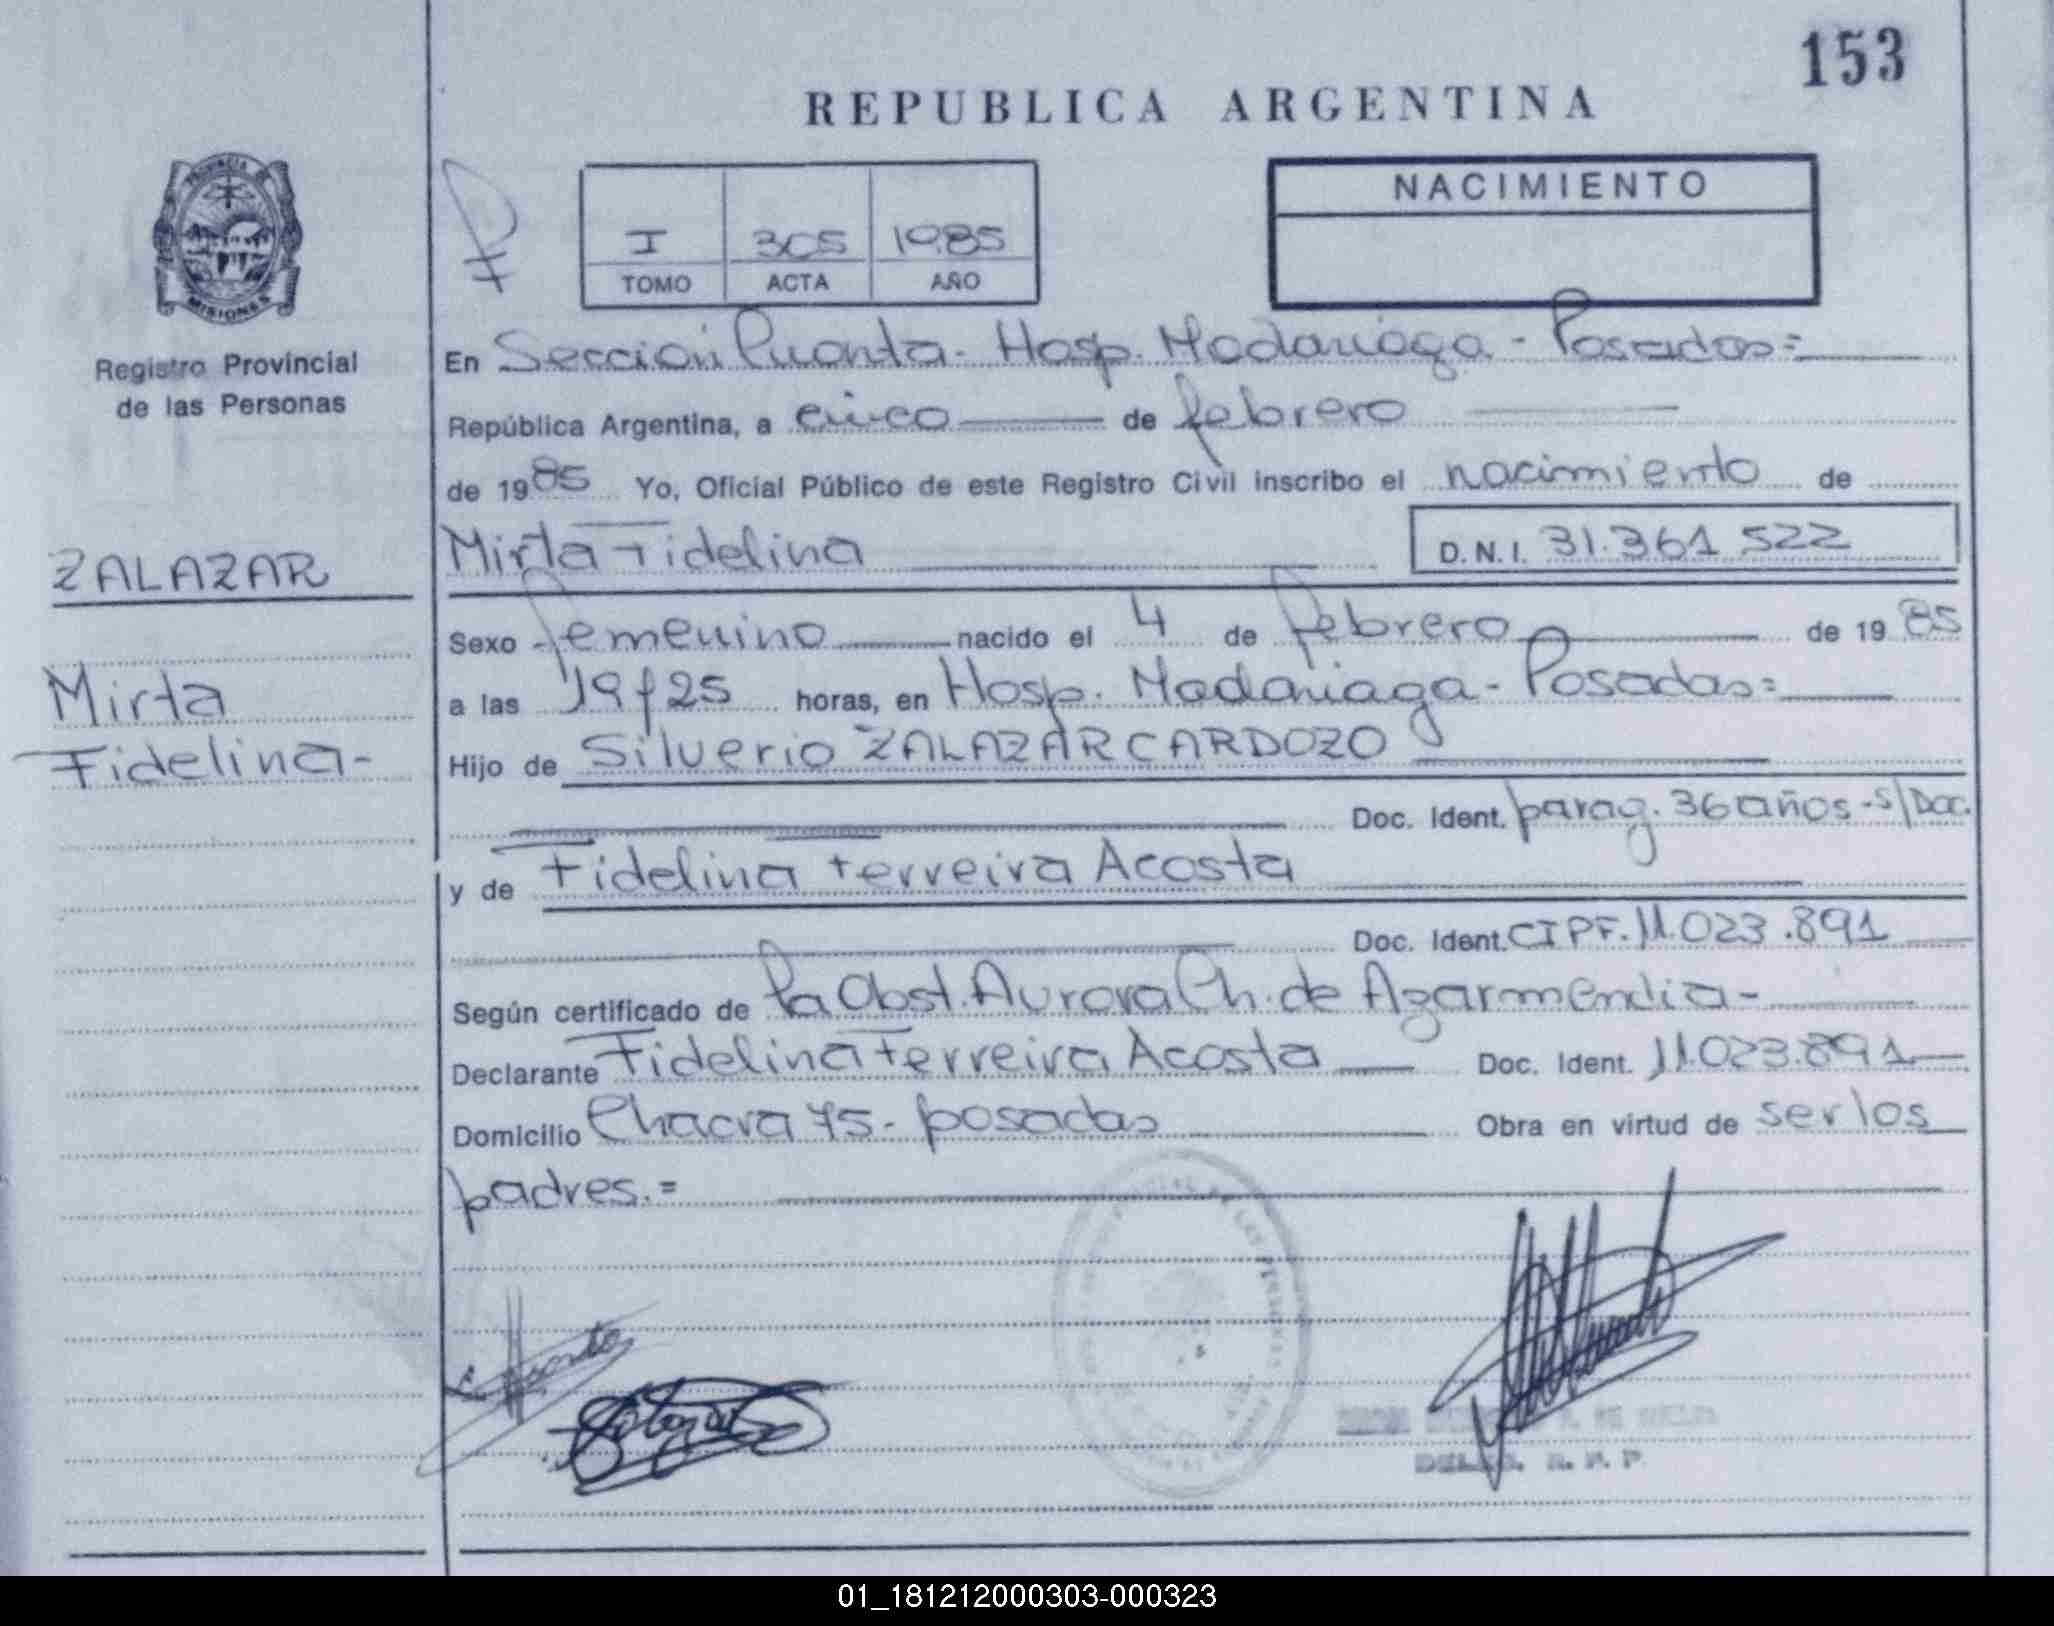 153
REPUBLICA ARGENTINA
PROVINCIA DE
MISIONES
Registro Provincial
de las Personas
I 305 1985
TOMO ACTA AÑO
NACIMIENTO
En Sección Cuarta - Hosp. Madariaga - Posadas=
República Argentina, a cinco de febrero
de 1985 Yo, Oficial Público de este Registro Civil inscribo el nacimiento de
ZALAZAR
Mirta Fidelina
D.N.I. 31.361 522
Sexo femenino nacido el 4 de febrero de 1985
Mirta
Fidelina-
a las 19 y 25 horas, en Hosp. Madariaga - Posadas=
Hijo de Silverio ZALAZAR CARDOZO
Doc. Ident. parag. 36 años - s/Doc.
y de Fidelina Ferreira Acosta
Doc. Ident. CIPF. 11.023.891
Según certificado de la Obst. Aurora Ch. de Agarmendia-
Declarante Fidelina Ferreira Acosta Doc. Ident. 11.023.891
Domicilio Chacra 75 - posadas Obra en virtud de ser los
padres.=
R. P. P
01_181212000303-000323